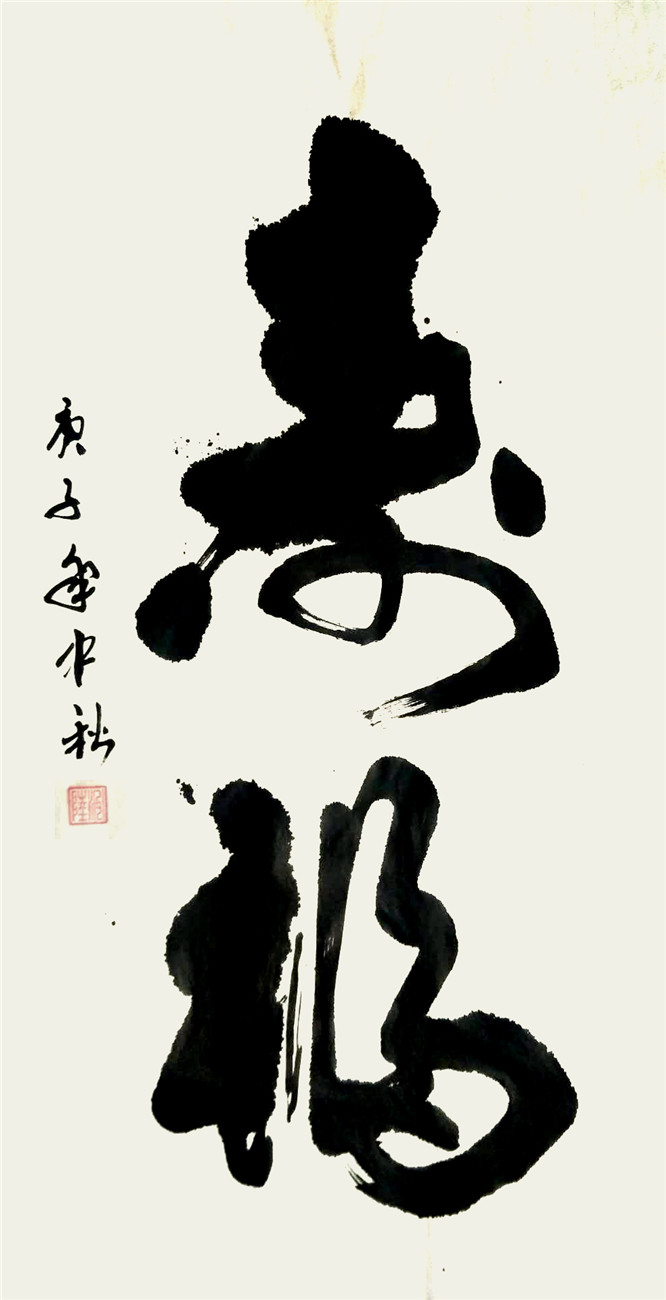 寿福
庚子年中秋